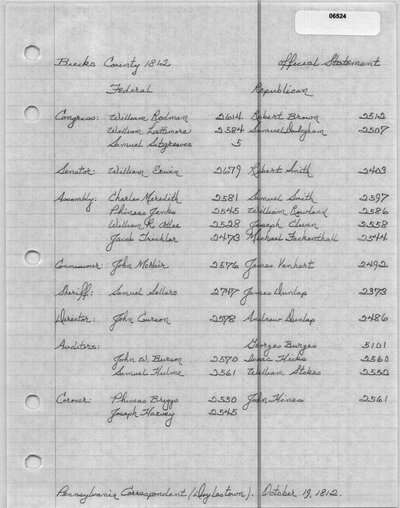 06524
Bucks County 1812 Official Statement
Federal Republican
Congress: William Rodman 2614 Robert Brown 2512
William Lattimore 2584 Samuel D. Ingham 2507
Samuel Sitgreaves 5
Senator: William Erwin 2679 Robert Smith 2403
Assembly: Charles Meredith 2581 Samuel Smith 2597
Phineas Jenks 2545 William Rowland 2586
William R. Atlee 2528 Joseph Clunn 2558
Jacob Trechler 2473 Michael Fackenthall 2544
Commissioner: John McNair 2576 James Vanhart 2492
Sheriff: Samuel Sellers 2747 James Dunlap 2373
Director: John Courson 2578 Andrew Dunlap 2486
Auditors: Georges Burges 5101
John W. Burson 2570 Isaac Hicks 2560
Samuel Hulme 2561 William Stokes 2552
Coroner: Phineas Briggs 2550 John Hines 2561
Joseph Harvey 2545
Pennsylvania Correspondent (Doylestown). October 19, 1812.